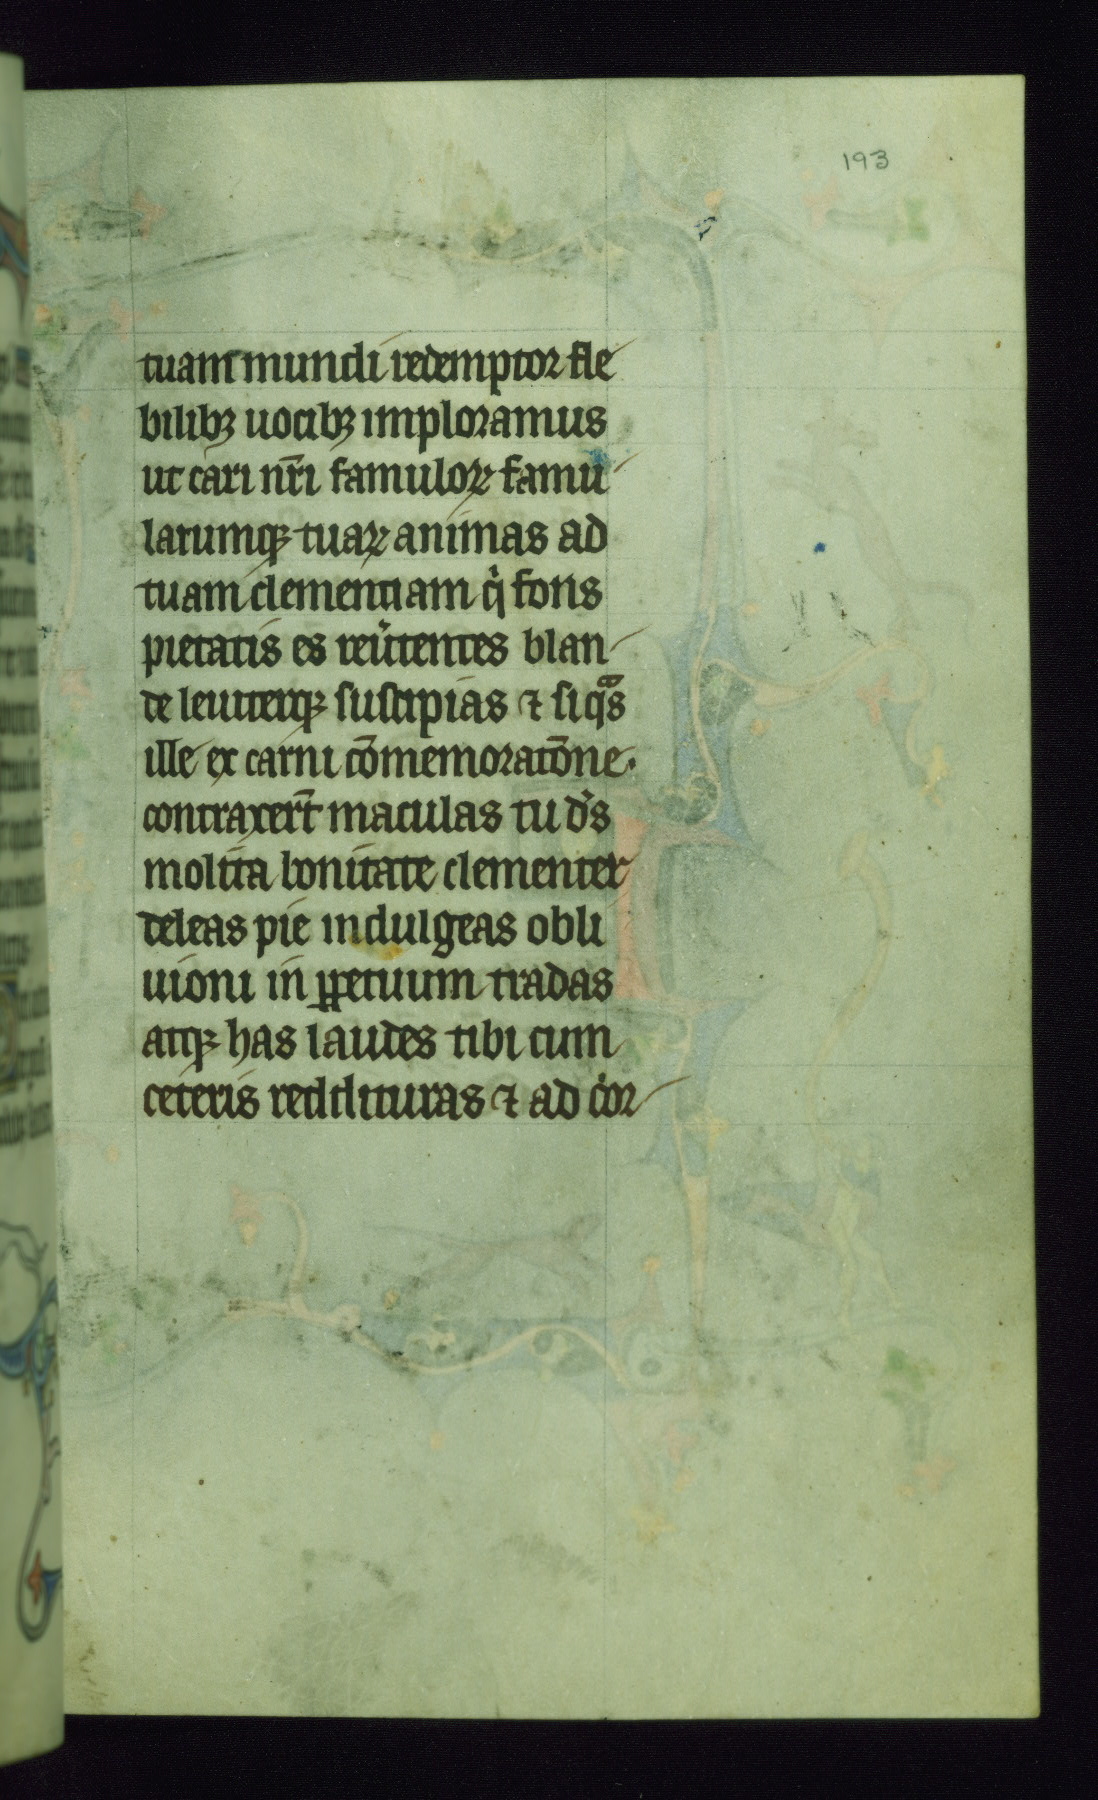 193
tuam mundi redemptor fle
bilibꝫ uocibꝫ imploramus
ut cari nr̄i famuloꝝ famu
larumqꝫ tuaꝝ animas ad
tuam clementiam qͥ fons
pietatis es reu̍tentes blan
de leuiterqꝫ suscipias ⁊ si qᵃs
ille ex carni cōmemoratōne.
contraxer̄t maculas tu d̄s
molita bonitate clementer
deleas pie indulgeas obli
uioni in ꝑpetuum tradas
atqꝫ has laudes tibi cum
ceteris reddituras ⁊ ad cor